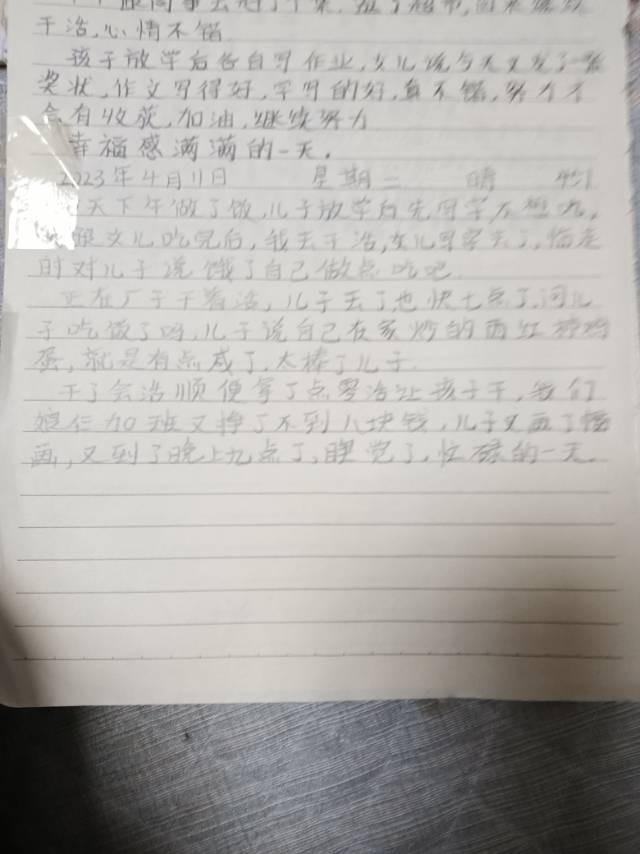 干活,心情不错
孩子放学后各自写作业,女儿说今天又发了一张
奖状,作文写得好,字写的好,真不错,努力才
会有收获,加油,继续努力
幸福感满满的一天。
2023年4月11日 星期二 晴 451
天下午做了饭,儿子放学后先写字不想吃,
跟女儿吃完后,我去干活,女儿写字去了,临走
时对儿子说饿了自己做点吃吧.
正在厂子干着活,儿子去了,也快七点了,问儿
子吃饭了吗,儿子说自己在家炒的西红柿鸡
蛋,就是有点咸了,太棒了儿子.
干了会活顺便拿了点零活让孩子干,我们
娘仨加班又挣了不到八块钱,儿子又画了幅
画,又到了晚上九点了,睡觉了,忙碌的一天。